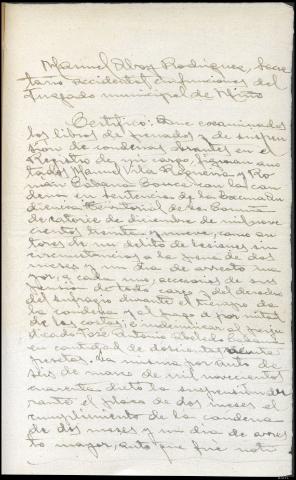 Manuel Aboy Rodriguez, Secre
tario accidental en funciones del
Juzgado municipal de Miño
Certifico: Que examinados
los libros de penados y de suspen
sión de condenas obrantes en el
Registro de mi cargo, figuran ano
tados Manuel Vila Requeira y Ro
man Cabana Couce con la con
dena en sentencia de la
Audiencia de La Coruña
de catorce de diciembre de mil nove
cientos treinta y nueve, como au
tores de un delito de lesiones sin
circunstancias a la pena de dos
meses y un día de arresto ma
yor, a cada uno, accesorias de sus
pensión de todo cargo y del derecho
del sufragio durante el tiempo de
la condena y al pago por mitad
de las costas, e indemnizar al perju
dicado José Antonio Cabana
en cantidad de doscientas
pesetas. La misma por auto de
seis de marzo de mil novecientos
cuarenta dictó la suspensión du
rante el plazo de dos meses el
cumplimiento de la condena
de dos meses y un día de arres
to mayor, auto que fué noti